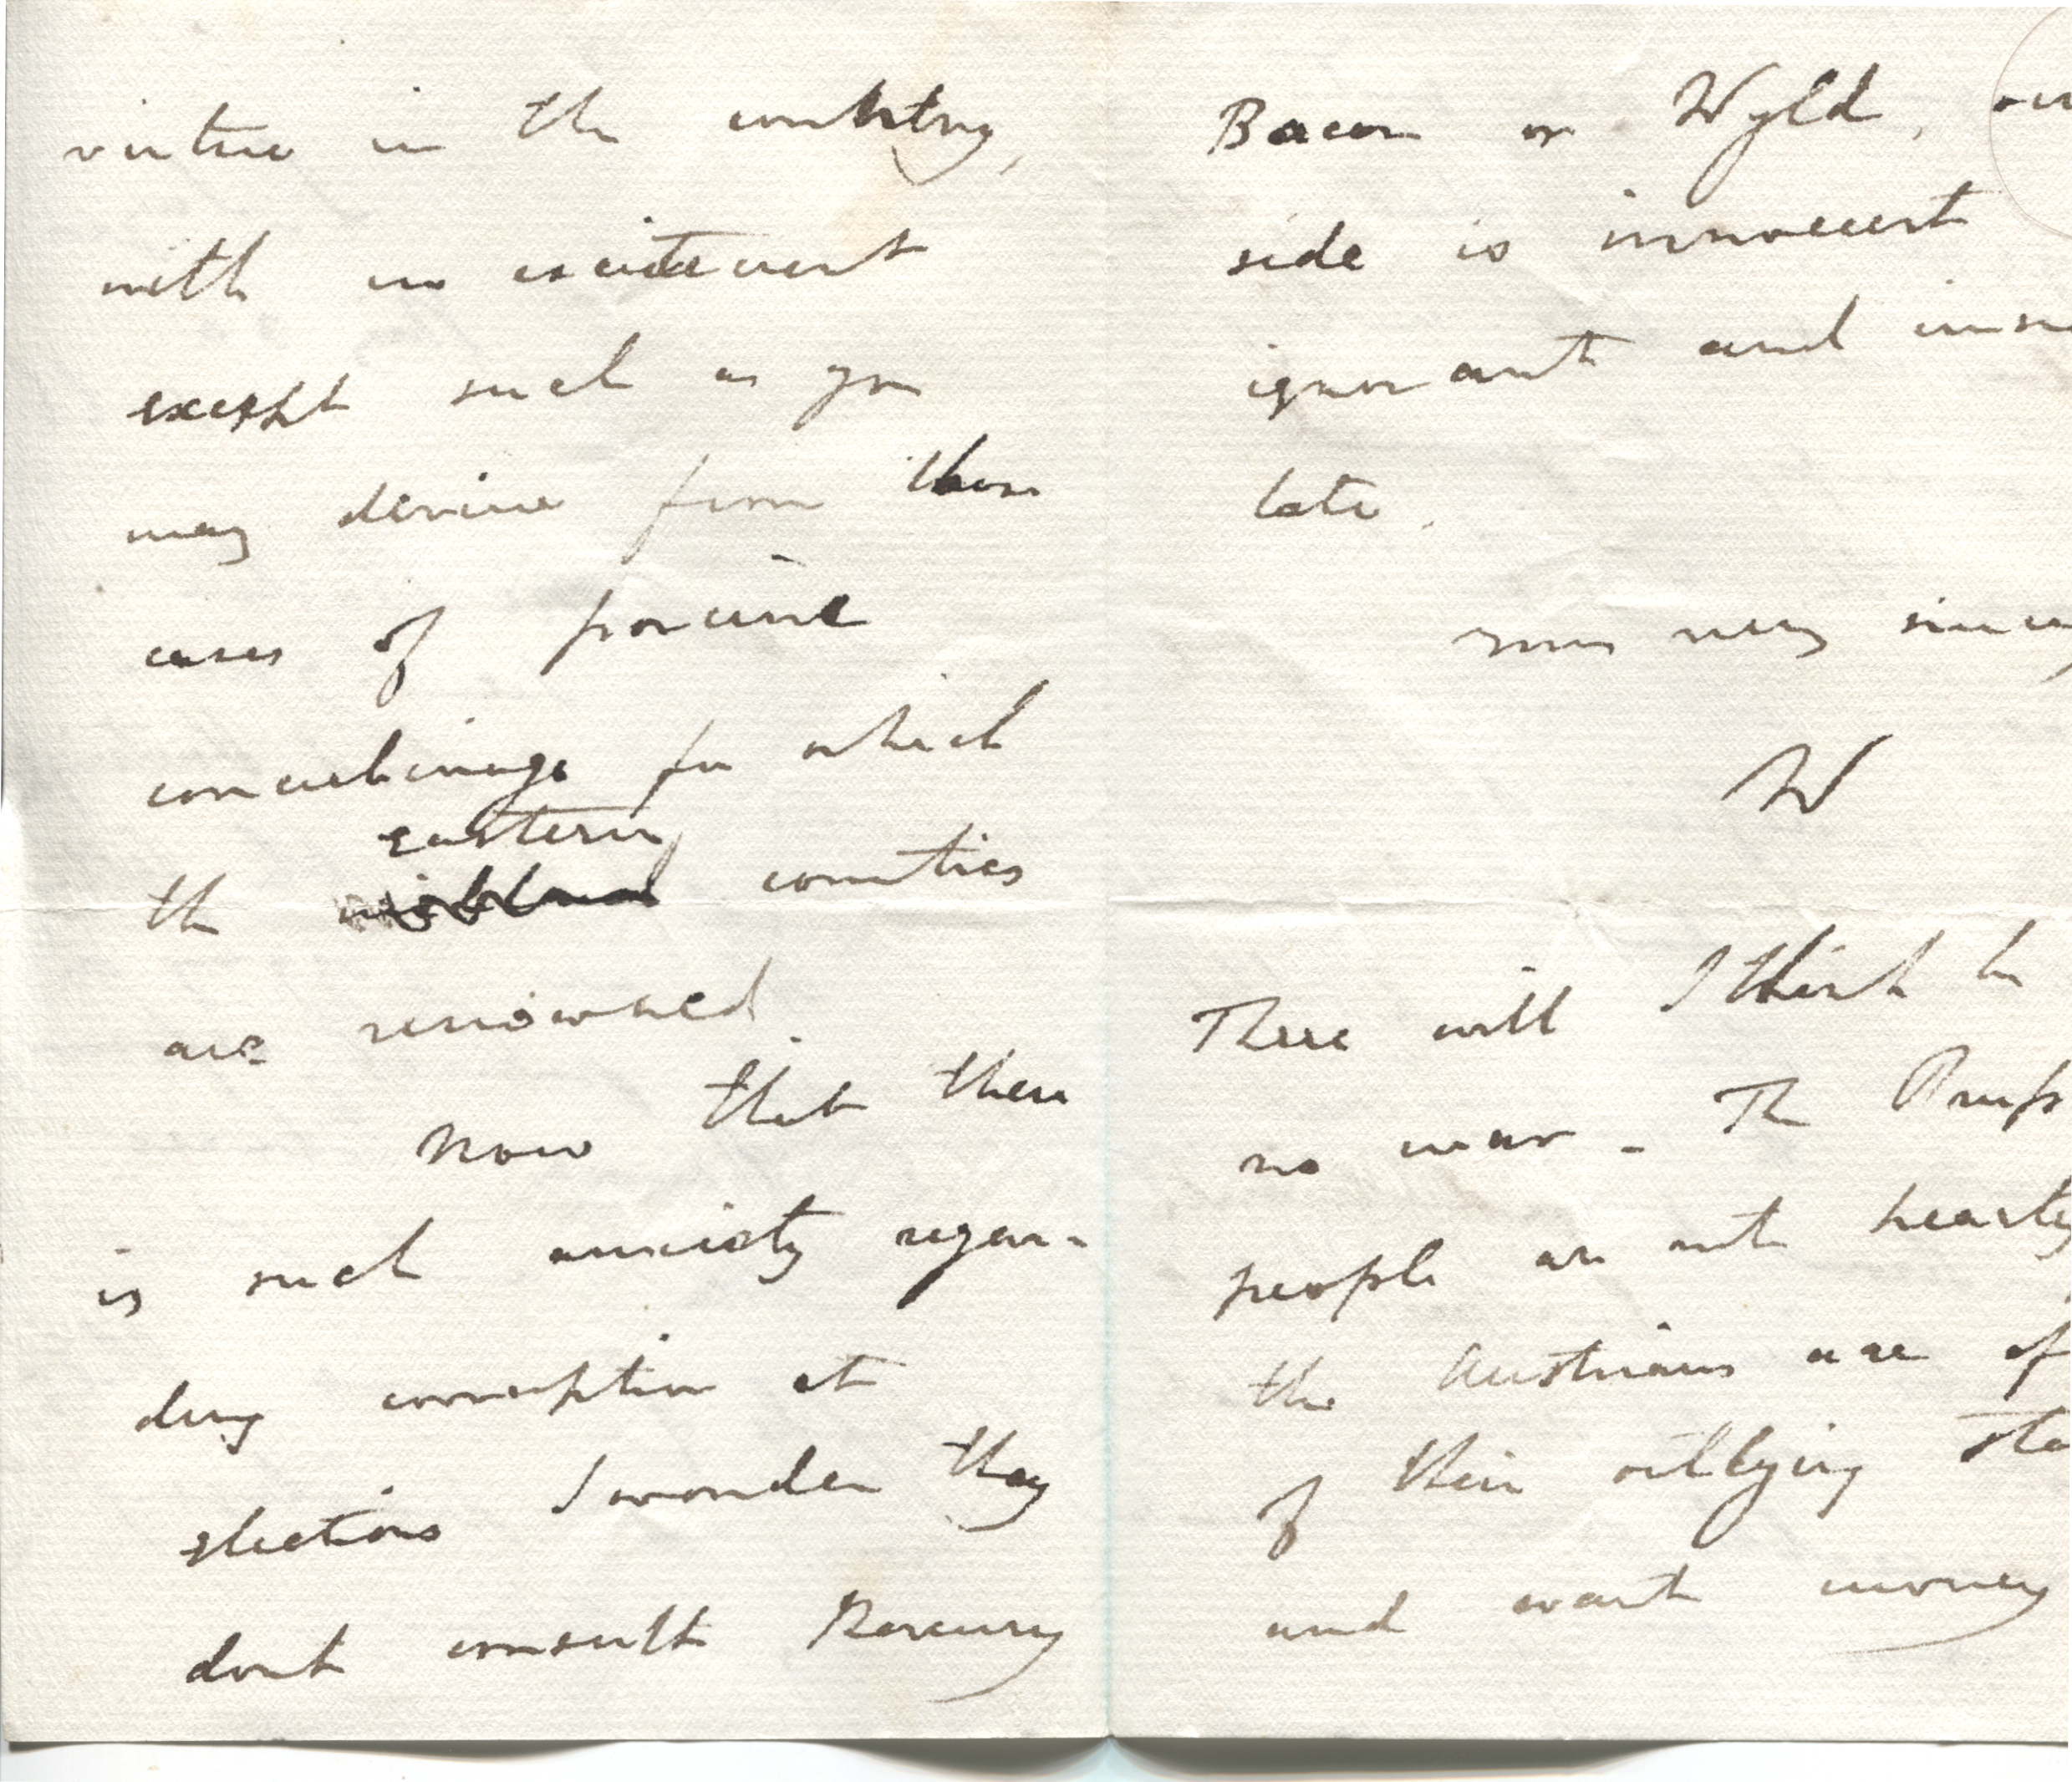 virtue in the country,
with no excitement
except such as you
may derive from those
cases of porcine
concubinage for which
eastern
the midland counties
are renowned.
Now that there
is such anxiety regar-
ding corruption at
elections I wonder they
dont consult
Bacon or Wyld, our
side is innocent
ignorant and
late.
Yours very
W
There will I think be
no war – The Pruss
people are not hearty
the Austrians are of
of their outlying sta
and want money